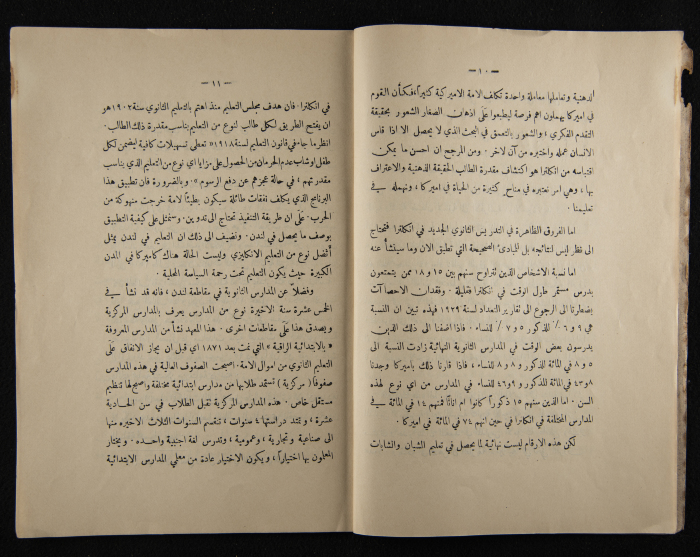 — ١٠ —
الذهنية وتعاملها معاملة واحدة تكلف الامة الاميركية كثيراً فكأن القوم
في اميركا يهملون اهم فرصة ليطبعوا على اذهان الصغار الشعور بحقيقة
التقدم الفكري، والشعور بالتعمق في البحث الذي لا يحصل الا اذا قاس
الانسان عمله واختبره من آن لآخر. ومن المرجح ان احسن ما يمكن
اقتباسه من انكلترا هو اكتشاف مقدرة الطالب الحقيقة الذهنية والاعتراف
بها، وهي امر نعتبره في مناحٍ كثيرة من الحياة في اميركا، ونهمله في
تعليمنا.
اما الفروق الظاهرة في التدريس الثانوي الجديد في انكلترا فتحتاج
الى نظر ليس لنتائجه بل للمبادئ الصحيحة التي تطبق الان وما سينشأ عنه
اما نسبة الاشخاص الذين تتراوح سنهم بين ١٥ و١٨ ممن يتمتعون
بدرس مستمر طول الوقت في انكلترا فقليلة. وفقدان الاحصاآت
يضطرنا الى الرجوع الى تقارير التعداد لسنة ١٩٢٩ فهذه تبين ان النسبة
هي ٩ و٦٪ للذكور و٥ و٧٪ للنساء. فاذا اضفنا الى ذلك الذين
يدرسون بعض الوقت في المدارس الثانوية النهائية زادت النسبة الى
٥ و٨ في المائة للذكور و٨ و٨ للنساء، فاذا قارنا ذلك باميركا وجدنا
٨ و٤٣ في المائة للذكور و٩ و٤٦ للنساء في المدارس من اي نوع لهذه
السن. اما الذين سنهم ١٥ ذكوراً كانوا ام اناثاً فمنهم ١٤ في المائة في
المدارس المختلفة في انكلترا في حين انهم ٧٤ في المائة في اميركا.
لكن هذه الارقام ليست نهائية لما يحصل في تعليم الشبان والشابات
— ١١ —
في انكلترا. فان هدف مجلس التعليم منذ اهتم بالتعليم الثانوي سنة ١٩٠٢ هو
ان يفتح الطريق لكل طالب لنوع من التعليم يناسب مقدرة ذلك الطالب.
انظر ما جاء في قانون التعليم لسنة ١٩١٨ «تعطى تسهيلات كافية ليضمن لكل
طفل او شاب عدم الحرمان من الحصول على مزايا اي نوع من التعليم الذي يناسب
مقدرتهم، في حالة عجزهم عن دفع الرسوم». وبالضرورة فان تطبيق هذا
البرنامج الذي يكلف نفقات طائلة سيكون بطيئاً لامة خرجت منهوكة من
الحرب. على ان طريقة التنفيذ تحتاج الى تدوين. وستمثل على كيفية التطبيق
بوصف ما يحصل في لندن. ونضيف الى ذلك ان التعليم في لندن يمثل
أفضل نوع من التعليم الانكليزي وليست الحالة هناك كاميركا في المدن
الكبيرة حيث يكون التعليم تحت رحمة السياسة المحلية.
وفضلاً عن المدارس الثانوية في مقاطعة لندن، فانه قد نشأ في
الخمس عشرة سنة الاخيرة نوع من المدارس يعرف بالمدارس المركزية
ويصدق هذا على مقاطعات اخرى. هذا المعهد نشأ من المدارس المعروفة
«بالابتدائية الراقية» التي نمت بعد ١٨٧١ اي قبل ان يجاز الانفاق على
التعليم الثانوي من اموال الامة. اصبحت الصفوف العالية في هذه المدارس
صفوفاً (مركزية) تستمد طلابها من مدارس ابتدائية مختلفة واصبح لها تنظيم
مستقل خاص. هذه المدارس المركزية تقبل الطلاب في سن الحادية
عشرة، وتمتد دراستها ٤ سنوات، تنقسم السنوات الثلاث الاخيرة منها
الى صناعية وتجارية، وعمومية، وتدرس لغة اجنبية واحده. ويختار
المعلمون بها اختياراً، ويكون الاختيار عادة من معلمي المدارس الابتدائية